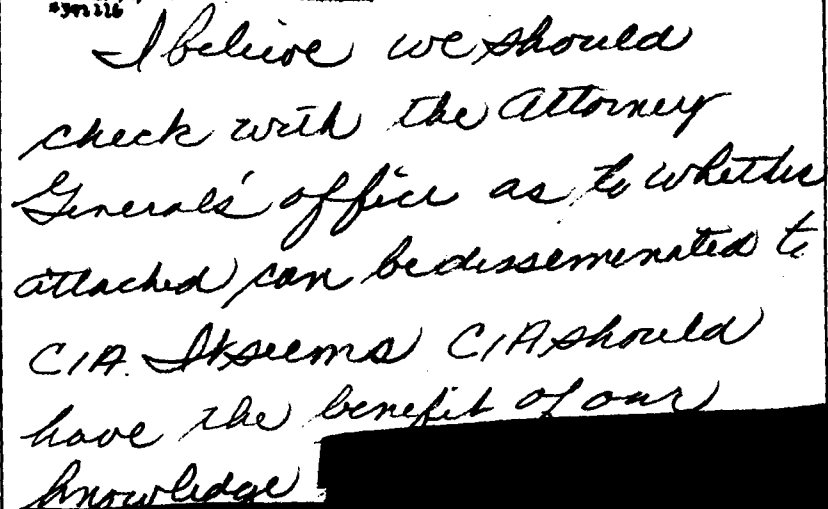 I believe we should
check with the Attorney
Generals' office as to whether
attached can be disseminated to
CIA. It seems CIA should
have the benefit of our
knowledge